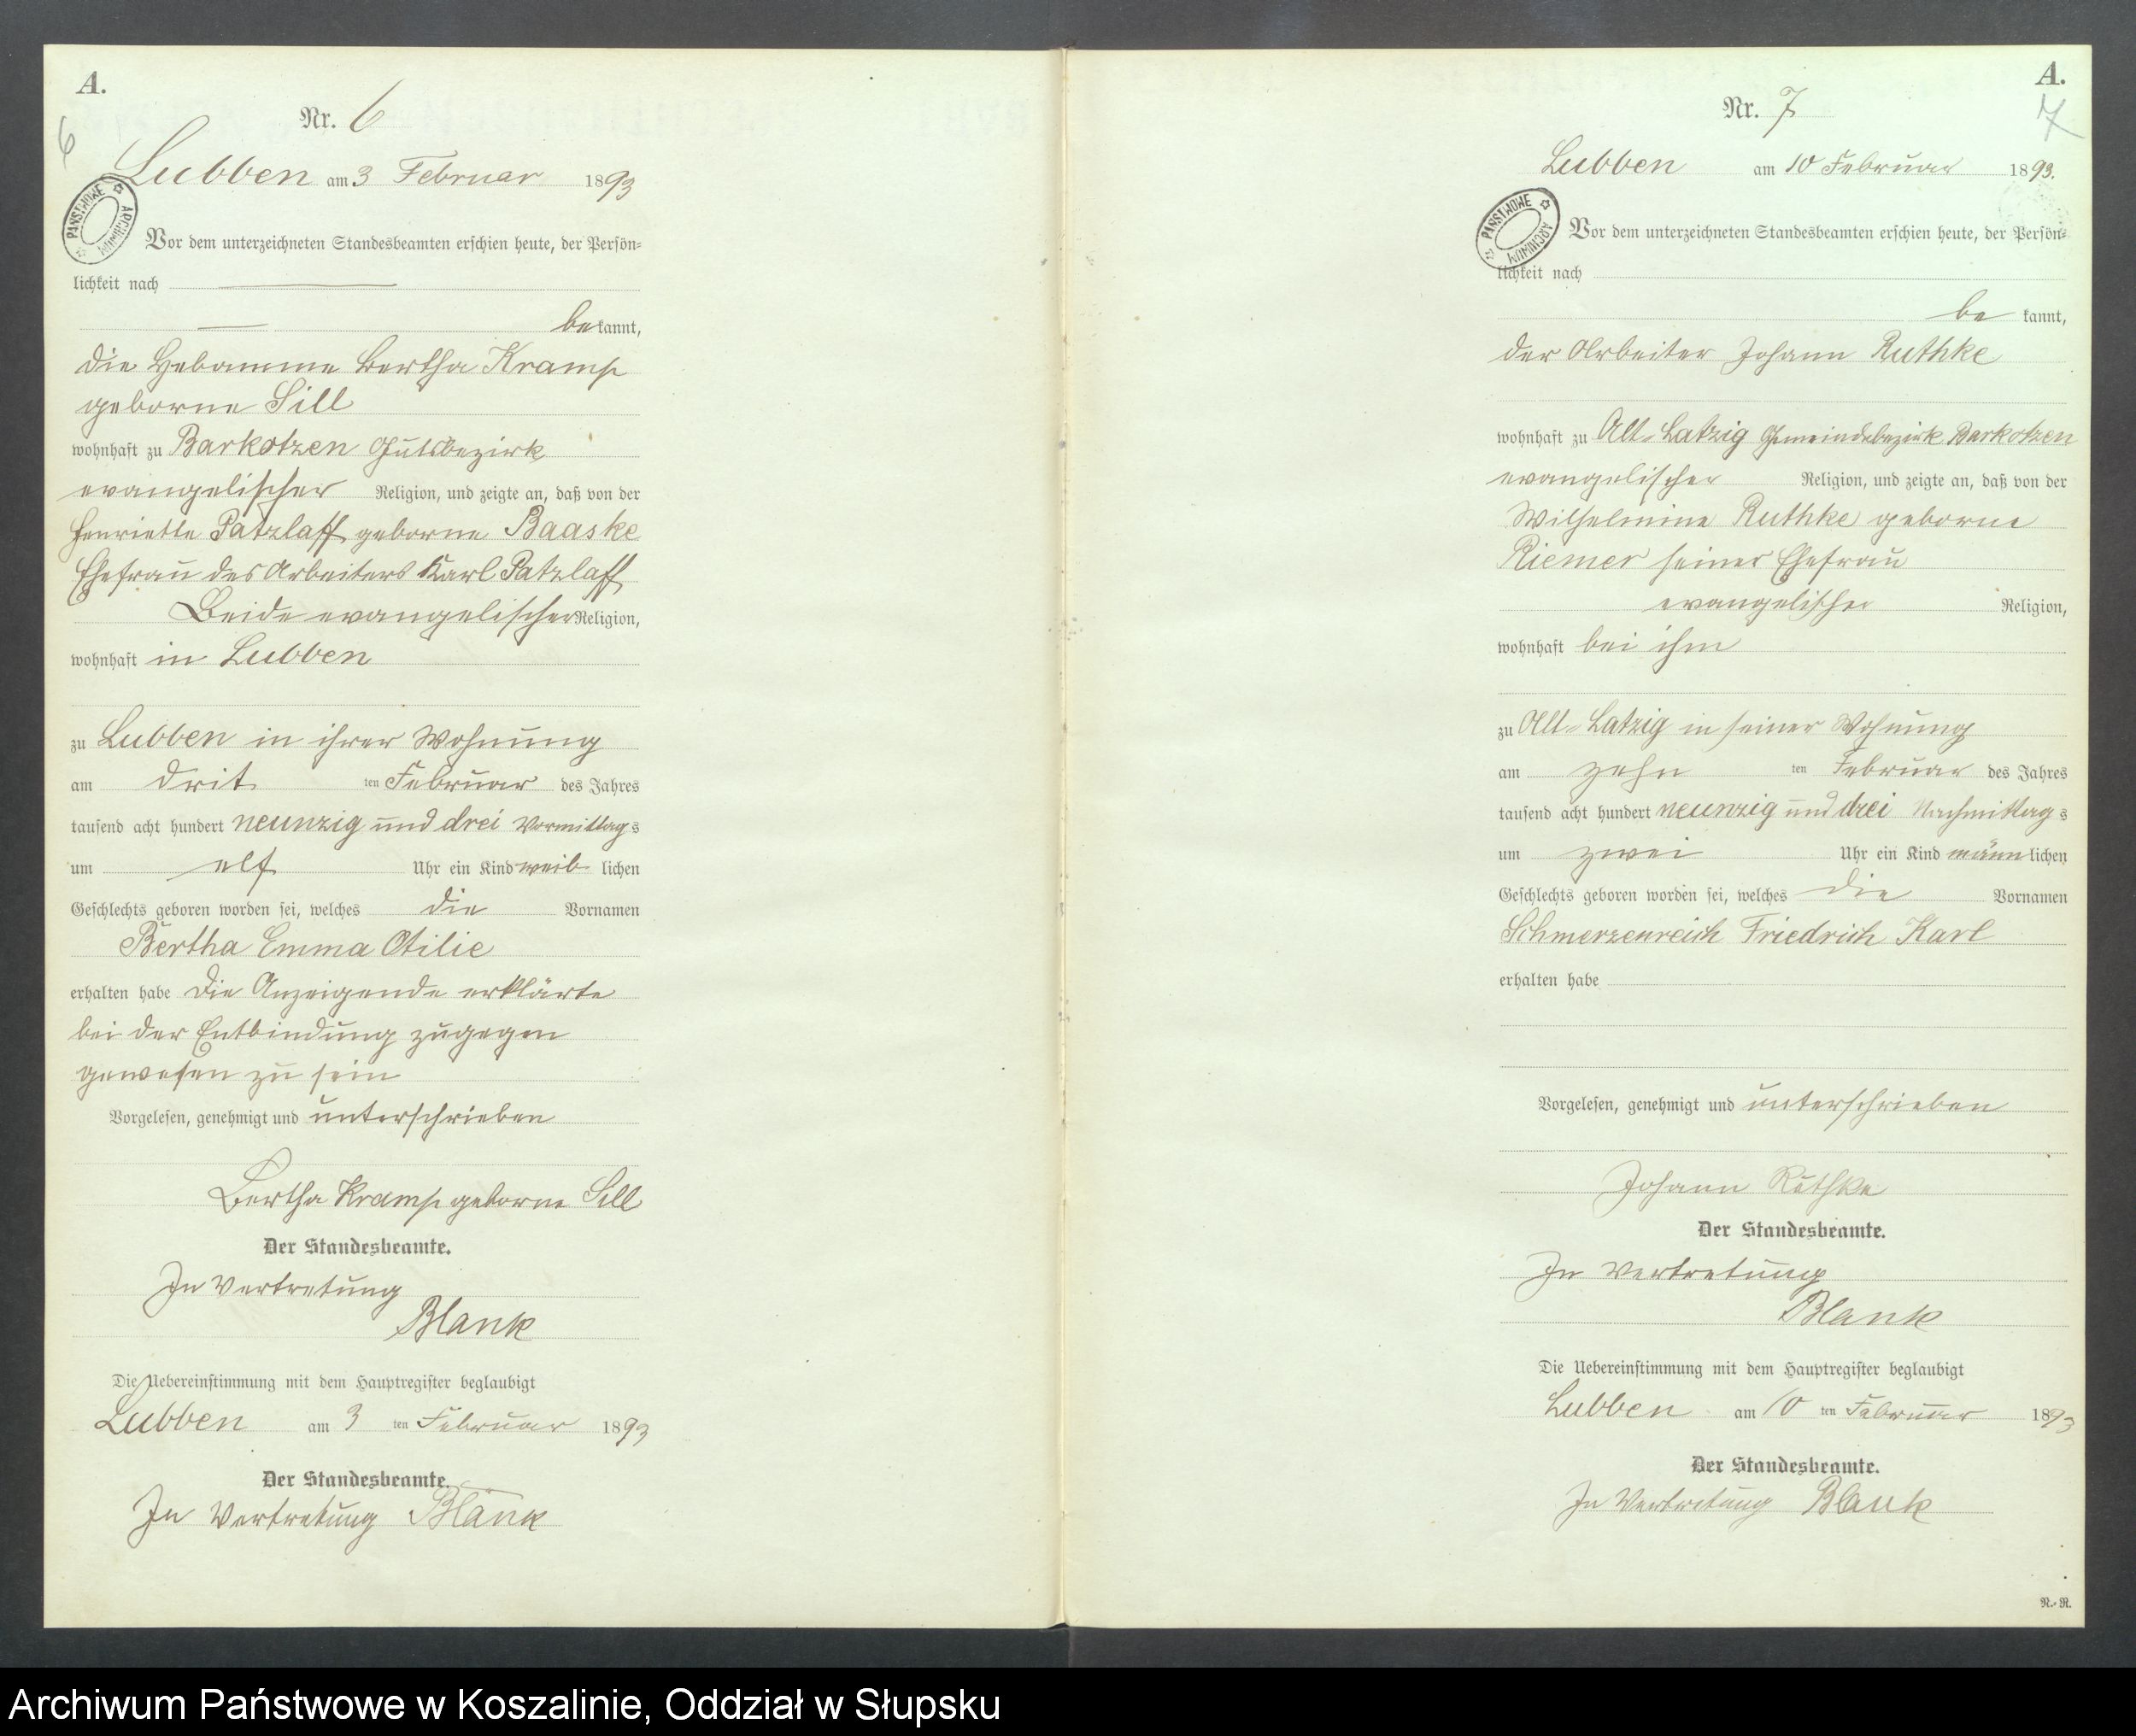 A.
6
Nr. 6
Lubben am 3 Februar 1893
PAŃSTWOWE ARCHIWUM
Vor dem unterzeichneten Standesbeamten erschien heute, der Persön-
lichkeit nach
bekannt,
die Hebamme Bertha Kramp
geborne Sill
wohnhaft zu Barkotzen Gutsbezirk
evangelischer Religion, und zeigte an, daß von der
Henriette Patzlaff geborne Baaske
Ehefrau des Arbeiters Karl Patzlaff
Beide evangelischer Religion,
wohnhaft in Lubben
zu Lubben in ihrer Wohnung
am drit ten Februar des Jahres
tausend acht hundert neunzig und drei Vormittags
um elf Uhr ein Kind weiblichen
Geschlechts geboren worden sei, welches die Vornamen
Bertha Emma Otilie
erhalten habe die Anzeigende erklärte
bei der Entbindung zugegen
gewesen zu sein
Vorgelesen, genehmigt und unterschrieben
Bertha Kramp geborne Sill
Der Standesbeamte.
In Vertretung
Blank
Die Uebereinstimmung mit dem Hauptregister beglaubigt
Lubben am 3 ten Februar 1893
Der Standesbeamte.
In Vertretung Blank
A.
7
Nr. 7
Lubben am 10 Februar 1893.
PAŃSTWOWE ARCHIWUM
Vor dem unterzeichneten Standesbeamten erschien heute, der Persön-
lichkeit nach
be kannt,
der Arbeiter Johann Ruthke
wohnhaft zu Alt-Latzig Gemeindebezirk Barkotzen
evangelischer Religion, und zeigte an, daß von der
Wilhelmine Ruthke geborne
Riemer seiner Ehefrau
evangelischer Religion,
wohnhaft bei ihm
zu Alt-Latzig in seiner Wohnung
am zehn ten Februar des Jahres
tausend acht hundert neunzig und drei Nachmittags
um zwei Uhr ein Kind männlichen
Geschlechts geboren worden sei, welches die Vornamen
Schmerzenreich Friedrich Karl
erhalten habe
Vorgelesen, genehmigt und unterschrieben
Johann Ruthke
Der Standesbeamte.
In Vertretung
Blank
Die Uebereinstimmung mit dem Hauptregister beglaubigt
Lubben am 10 ten Februar 1893
Der Standesbeamte.
In Vertretung Blank
N.-R.
Archiwum Państwowe w Koszalinie, Oddział w Słupsku